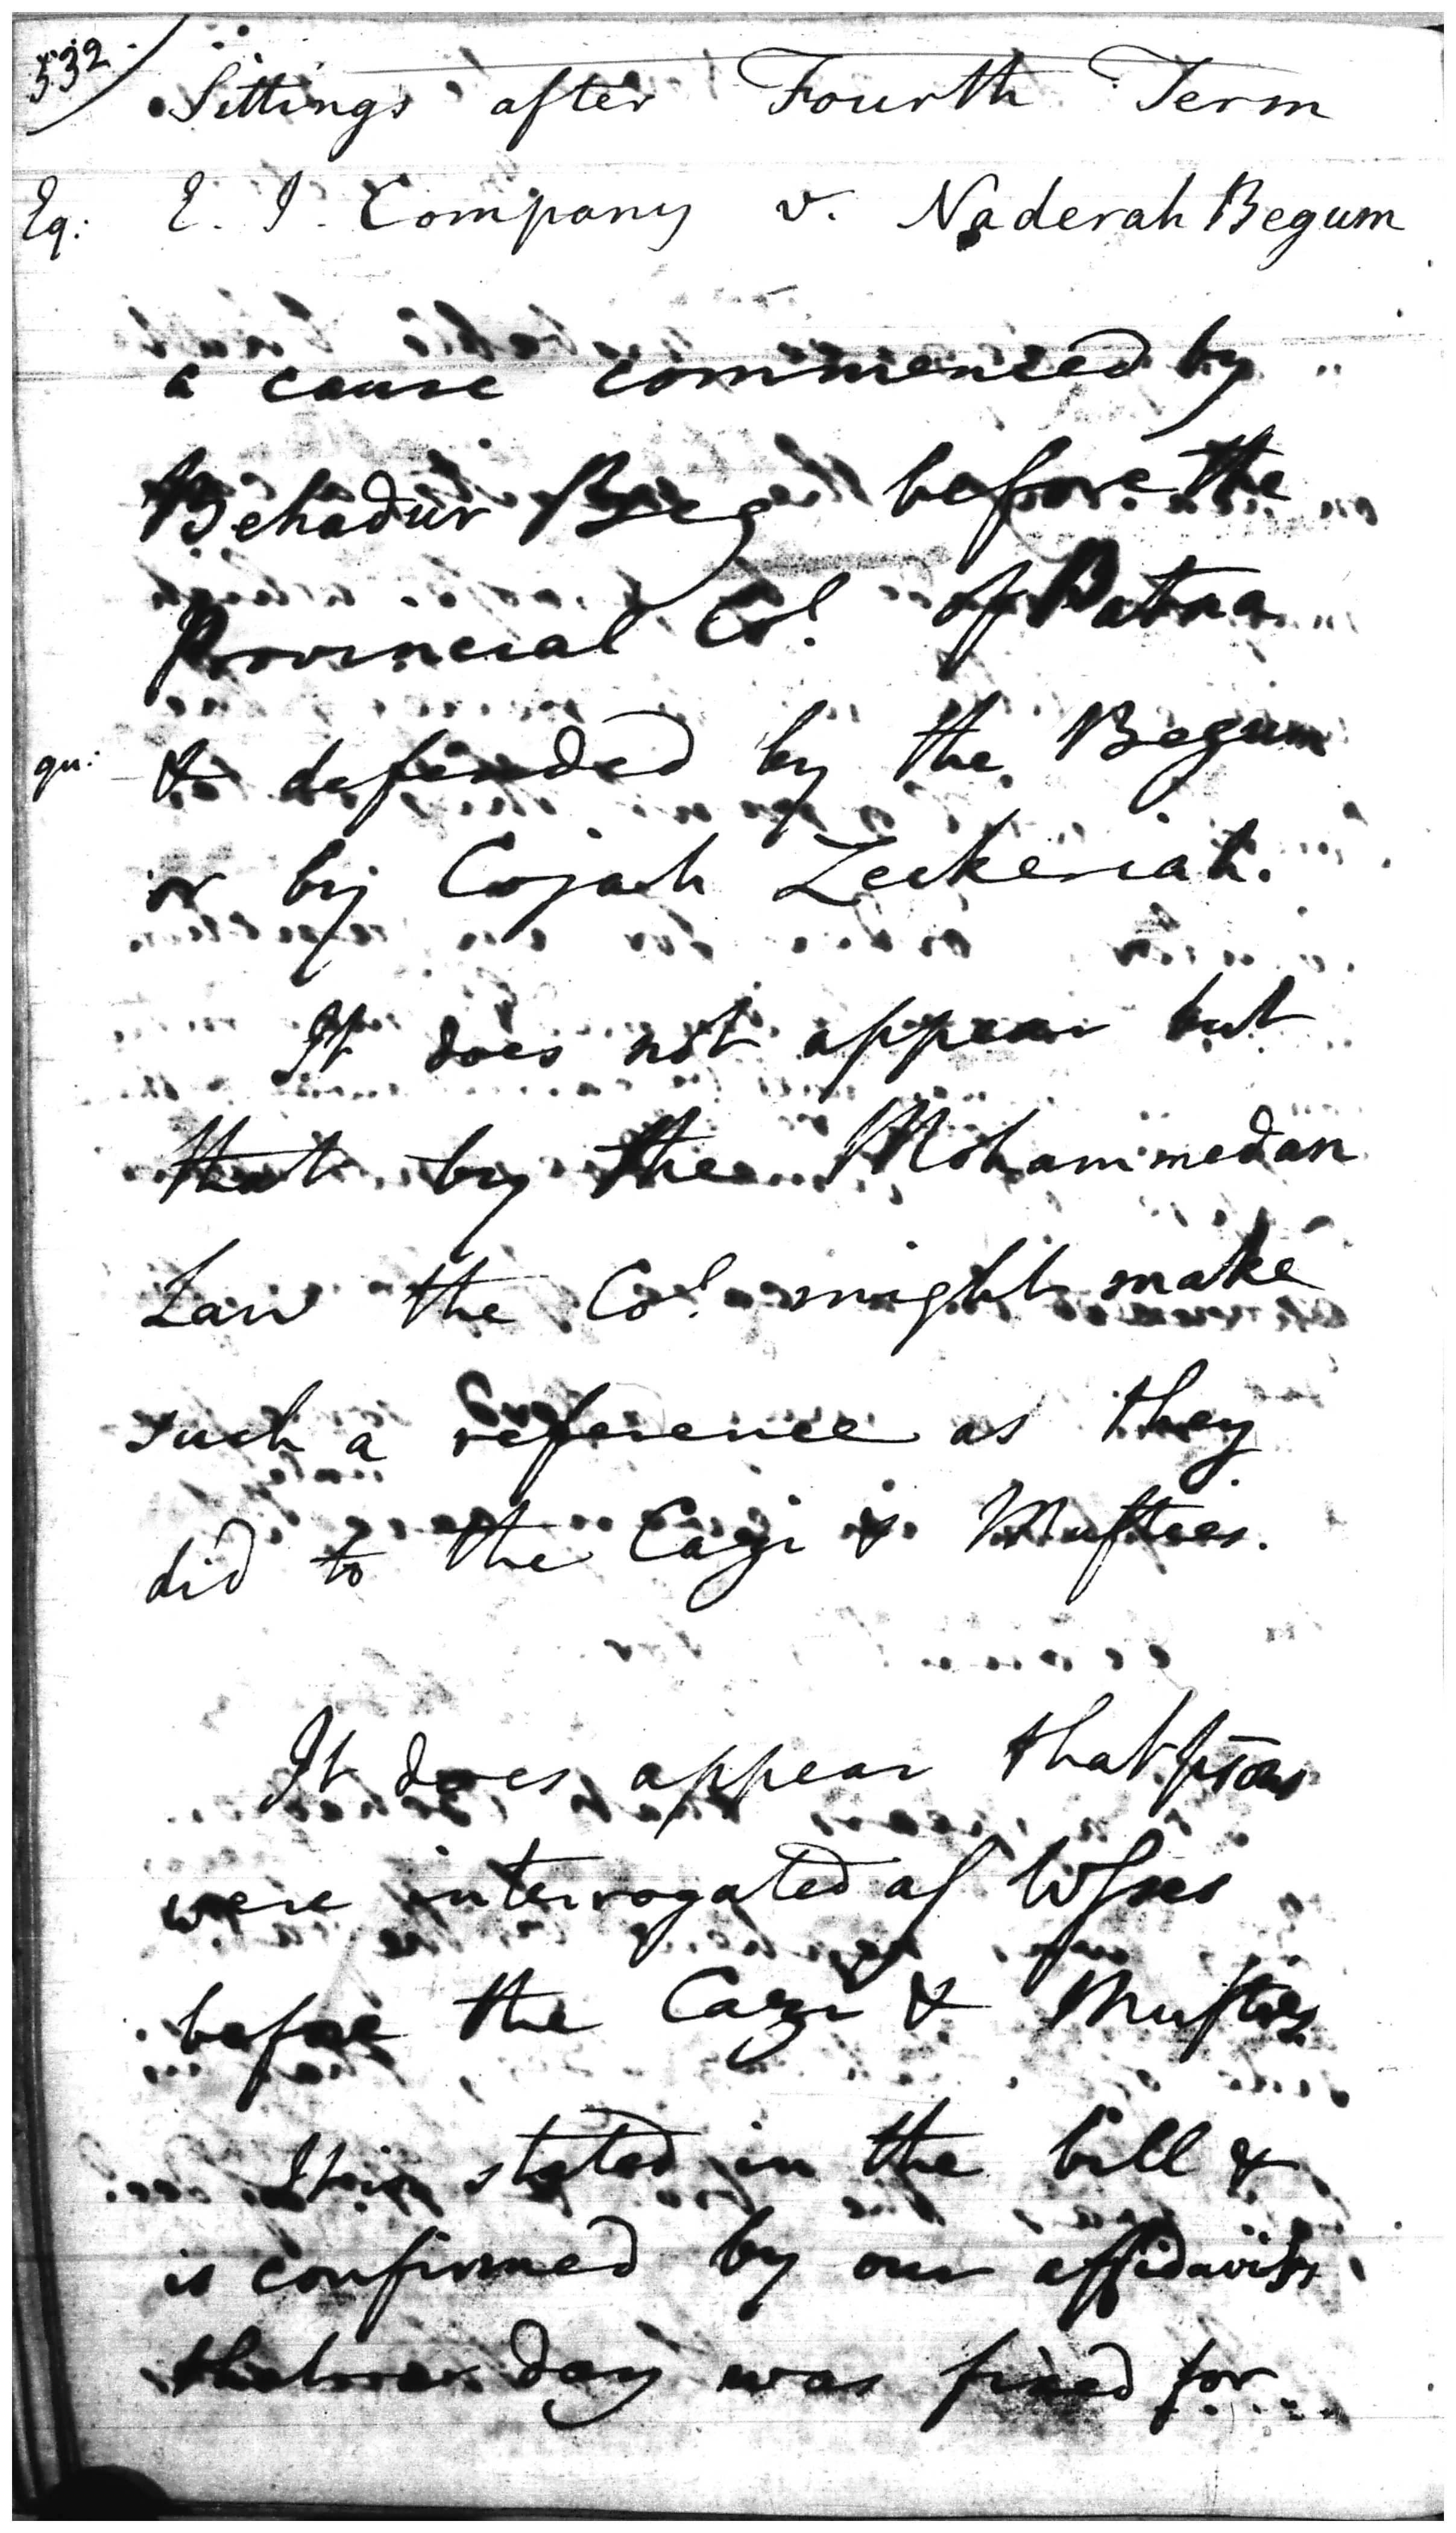 532.
Sittings after Fourth Term
Eq: E. I. Company v. Naderah Begum
a cause commenced by
Behadur Beg before the
Provincial Col. of Patna
qu: & defended by the Begum
or by Cojah Zeekeriah.
It does not appear but
that by the Mohammedan
Law the Col. might make
such a reference as they
did to the Cazi & Mufties.
It does appear that
were interrogated as
before the Cazi & Mufties
It is stated in the bill &
is confirmed by our affidavits
day was fixed for